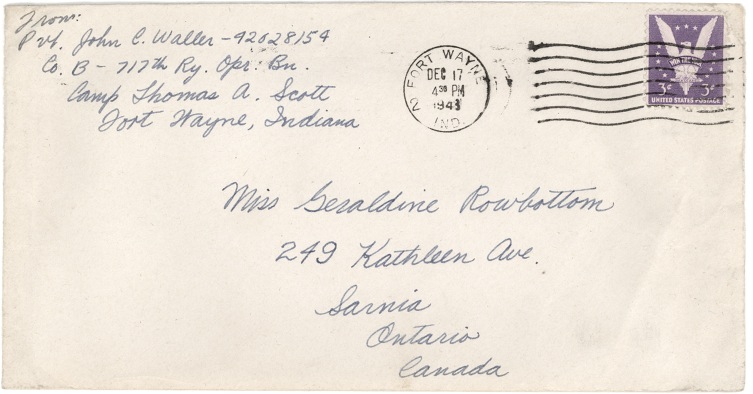 From:
Pvt. John C. Waller - 42028154
Co. B - 717th Ry. Opr. Bn.
Camp Thomas A. Scott
Fort Wayne, Indiana
FORT WAYNE 2
DEC 17
4 30 PM
1943
IND.
WIN THE WAR
3¢ 3¢
UNITED STATES POSTAGE
Miss Geraldine Rowbottom
249 Kathleen Ave.
Sarnia
Ontario
Canada